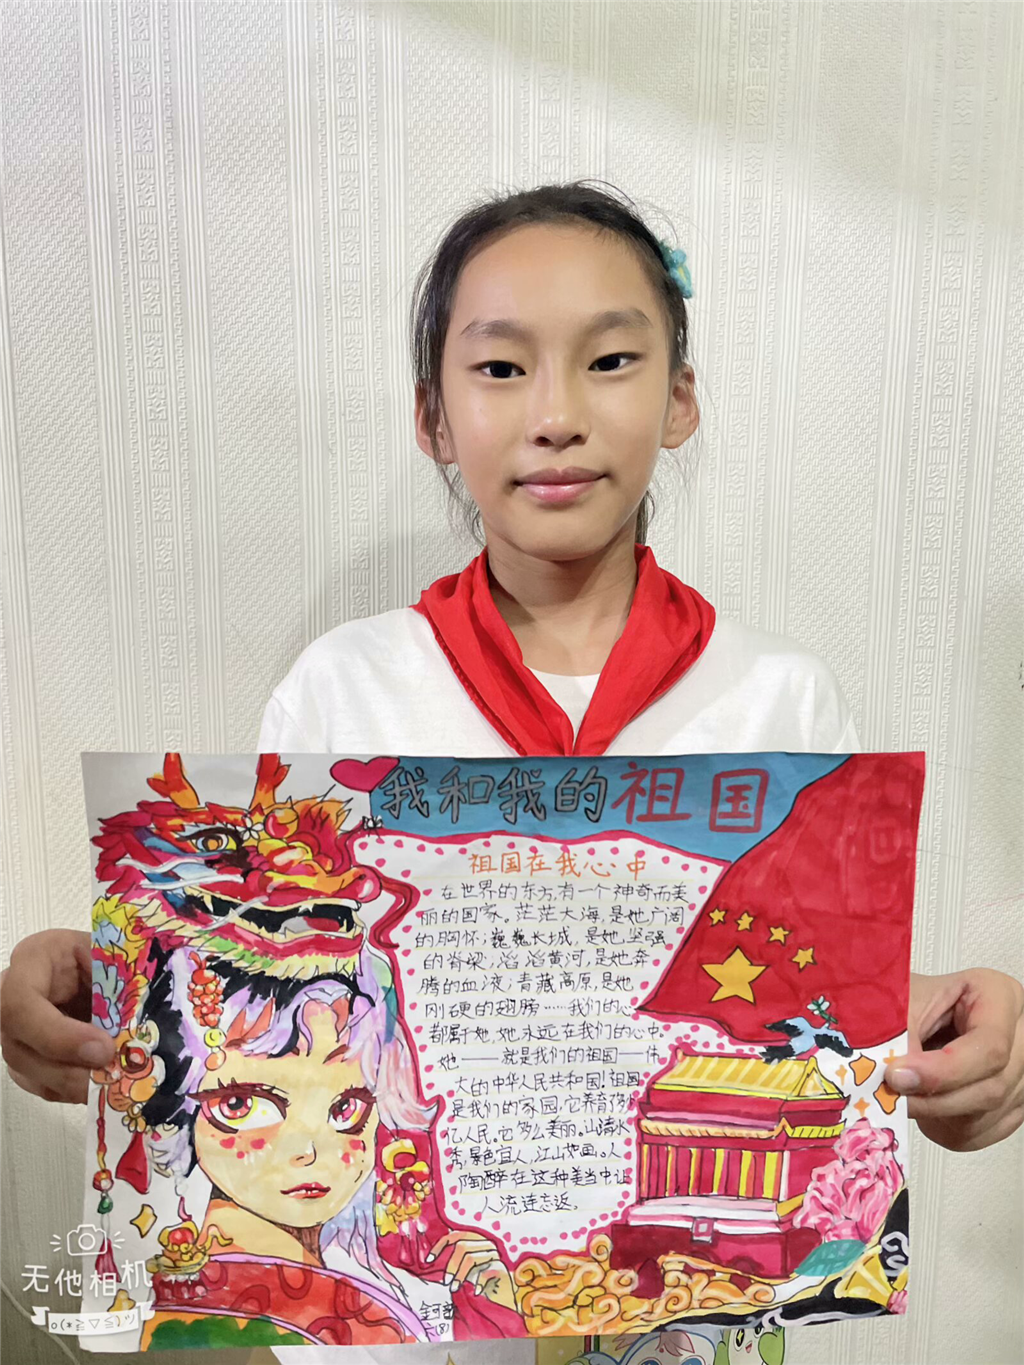 我和我的祖国
祖国在我心中
在世界的东方,有一个神奇而美
丽的国家。茫茫大海,是她广阔
的胸怀;巍巍长城,是她坚强
的脊梁;滔滔黄河,是她奔
腾的血液;青藏高原,是她
刚硬的翅膀……我们的心
都属于她,她永远在我们的心中。
她——就是我们的祖国——伟
大的中华人民共和国!祖国
是我们的家园,它养育了
亿人民。它多么美丽。山清水
秀,景色宜人,江山如画。人
陶醉在这种美当中让
人流连忘返。
六(8)
无他相机